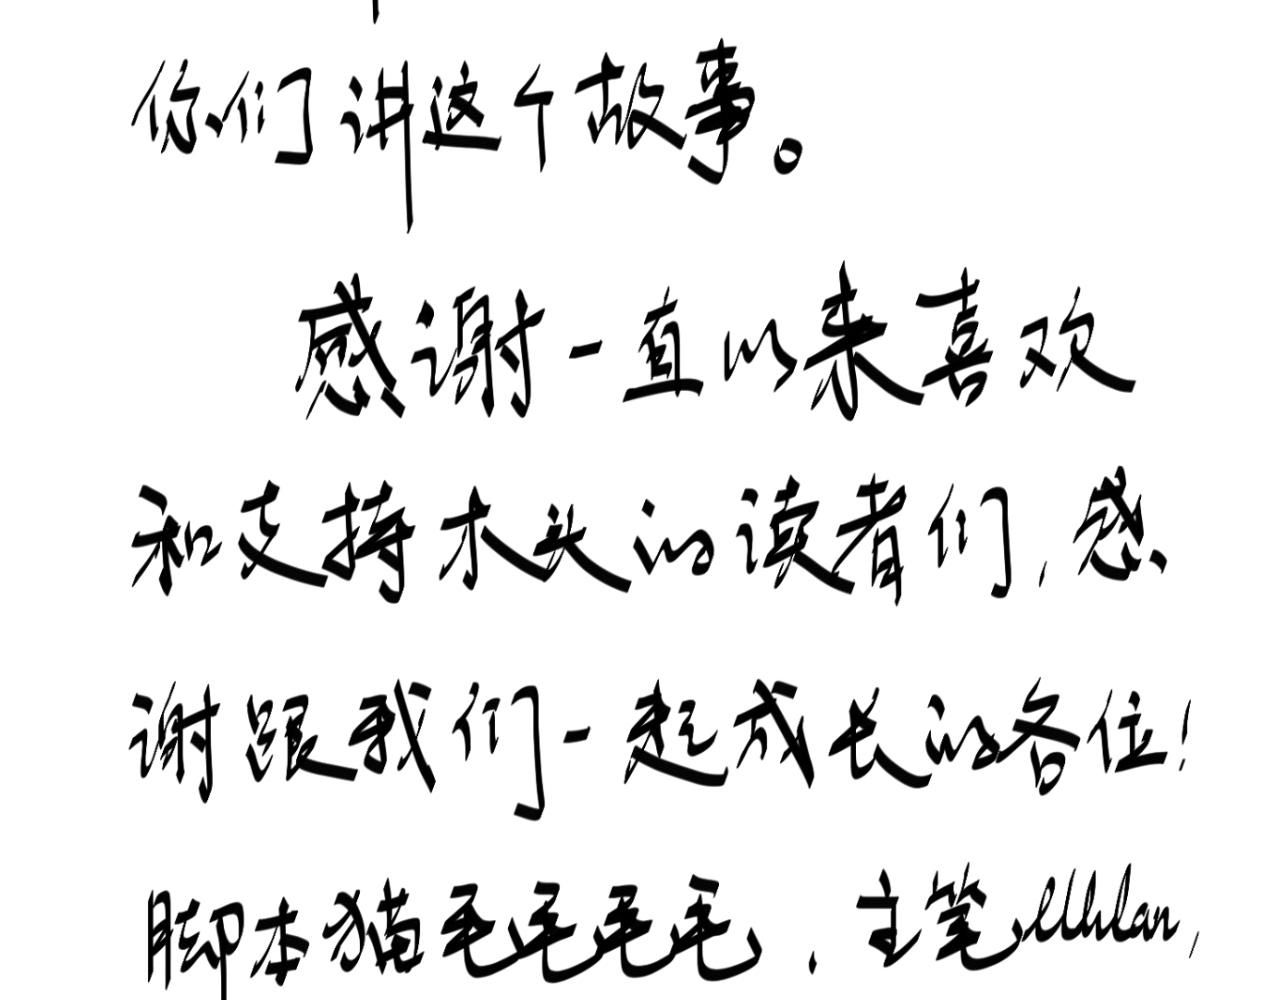 你们讲这个故事。
感谢一直以来喜欢
和支持木头的读者们,感
谢跟我们一起成长的各位!
脚本猫毛毛毛毛,主笔